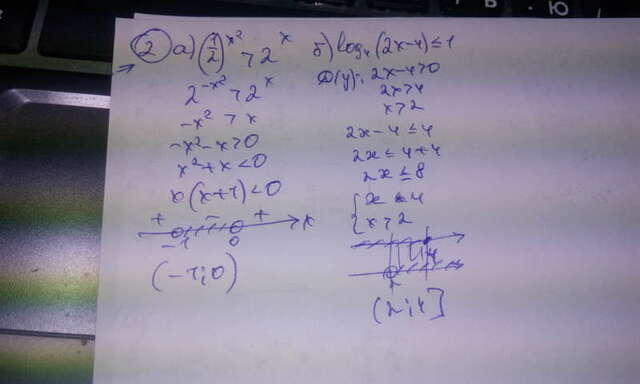 2 а) (1/2)^x² > 2^x
2^-x² > 2^x
-x² > x
-x²-x>0
x²+x<0
x(x+1)<0
+ - + x
-1 0
(-1;0)
б) log₄(2x-4) ≤ 1
D(y): 2x-4>0
2x>4
x>2
2x-4 ≤ 4
2x ≤ 4+4
2x ≤ 8
{ x ≤ 4
{ x>2
4
2
(2;4]
Ю